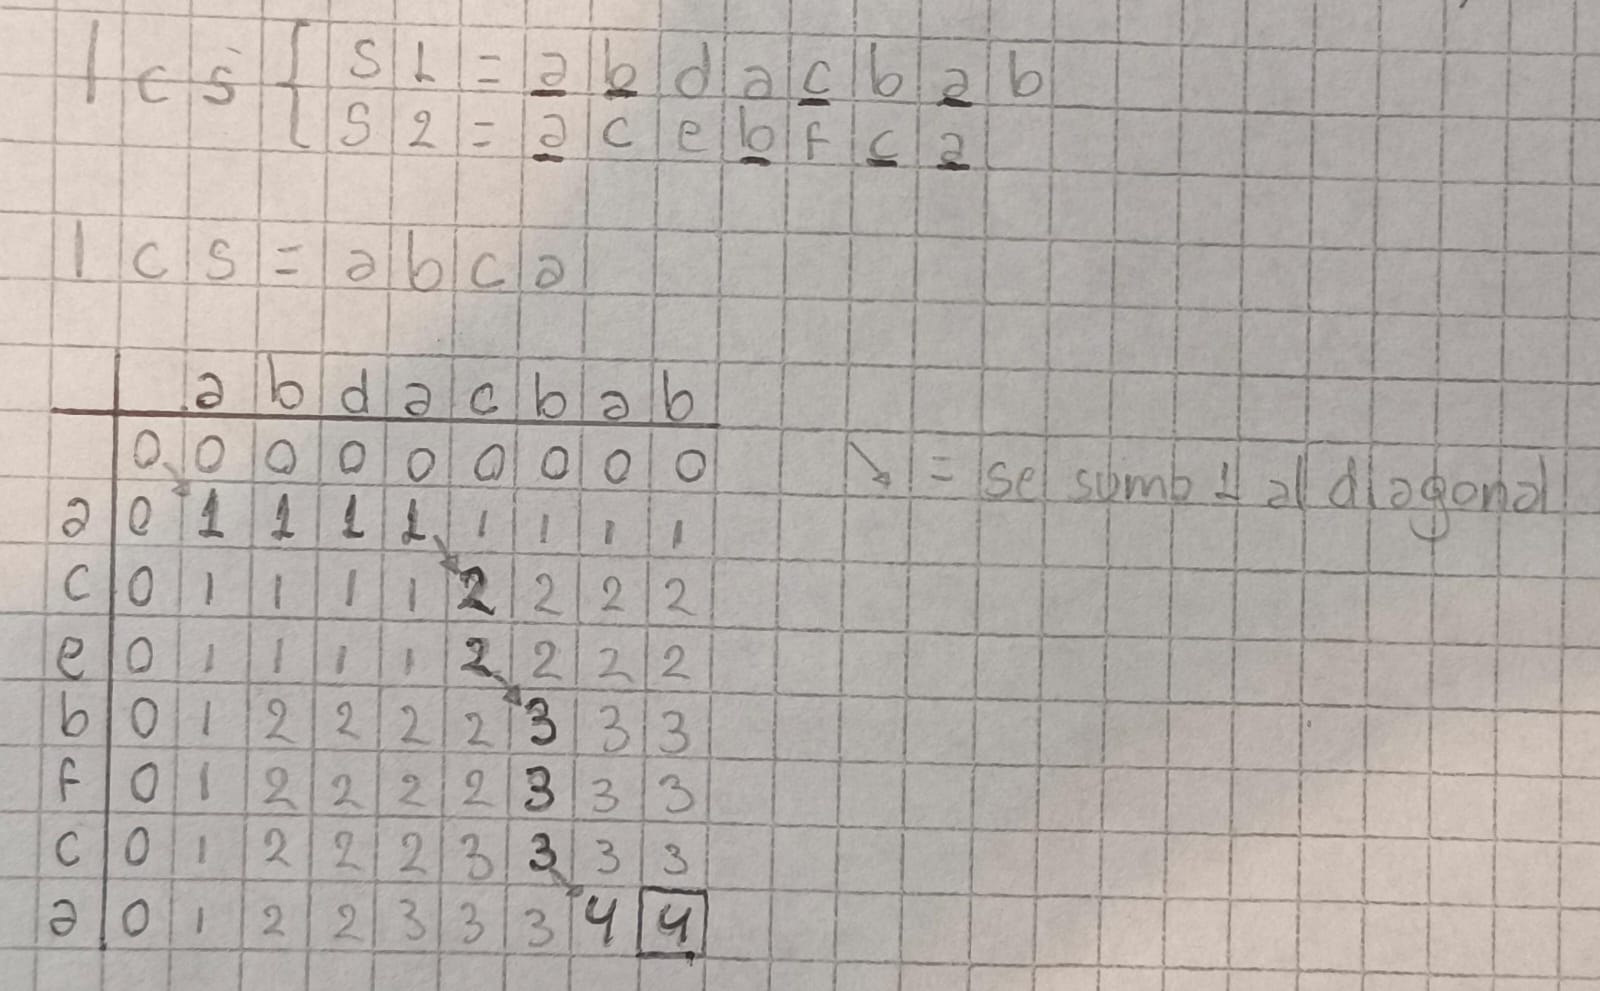 lcs { S1 = a b d a c b a b
S2 = a c e b f c a
lcs = a b c a
a b d a c b a b
0 0 0 0 0 0 0 0 0
a 0 1 1 1 1 1 1 1 1
c 0 1 1 1 1 2 2 2 2
e 0 1 1 1 1 2 2 2 2
b 0 1 2 2 2 2 3 3 3
f 0 1 2 2 2 2 3 3 3
c 0 1 2 2 2 3 3 3 3
a 0 1 2 2 3 3 3 4 4
↘ = se sumo 1 al diagonal